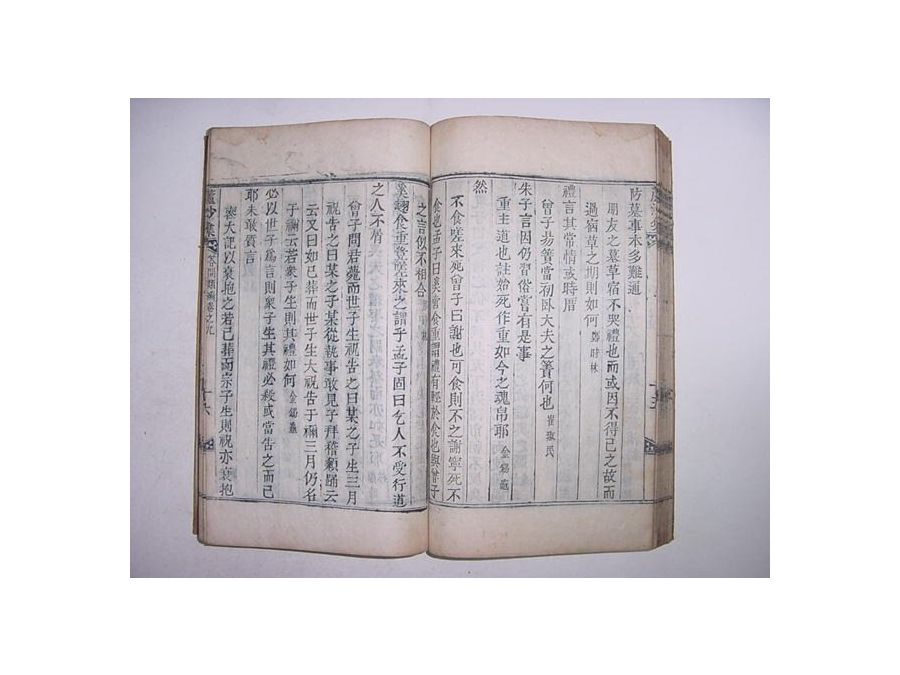 防墓事本多難通
朋友之墓草宿不哭禮也而或因不得已之故而
過宿草之期則如何 鄭時林
禮言其常情或時厝
曾子易簀當初臥大夫之簀何也 崔琡民
朱子言因仍習俗嘗有是事
重主道也註始死作重如今之魂帛耶 金錫龜
然
不食嗟來宛曾子曰謝也可食則不之謝寧死不
食也孟子曰奚啻食重謂禮有輕於食也與曾子
之言似不相合
奚翅食重豈嗟來之謂乎孟子固曰乞人不受行道
之人不屑
曾子問君薨而世子生祝告之曰某之子生三月
祝告之曰某之子某從執事敢見子拜稽顙踊云
云又曰如已葬而世子生大祝告于禰三月仍名
于禰云若衆子生則其禮如何 金錫龜
必以世子爲言則衆子生其禮必殺或當告之而已
耶未敢質言
喪大記以衰抱之若已葬而宗子生則祝亦衰抱
蘆沙集 答問類編卷之九 十六